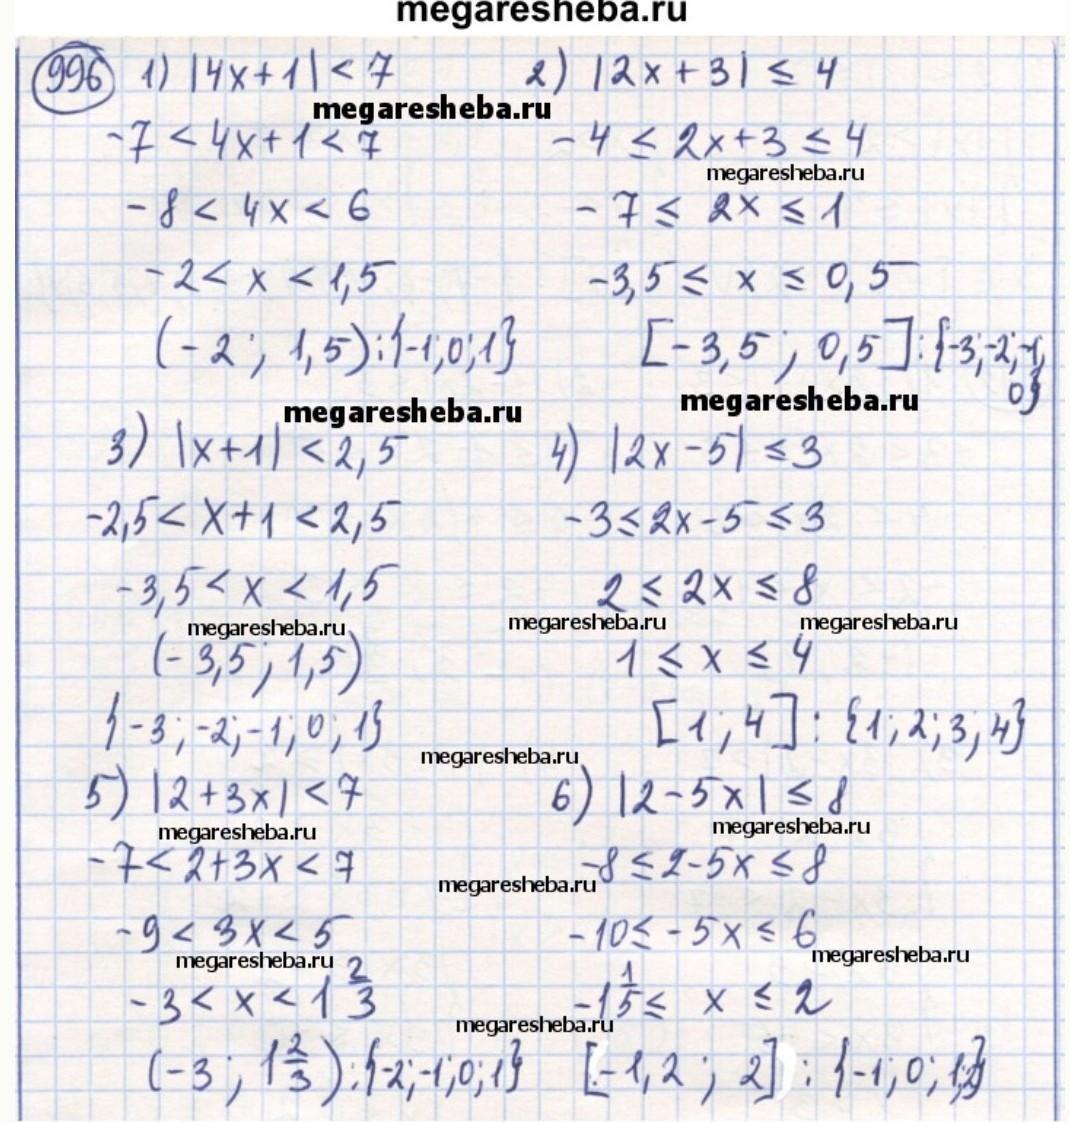 megaresheba.ru
996 1) |4x+1| < 7 2) |2x+3| ≤ 4
megaresheba.ru
-7 < 4x+1 < 7 -4 ≤ 2x+3 ≤ 4
megaresheba.ru
-8 < 4x < 6 -7 ≤ 2x ≤ 1
-2 < x < 1,5 -3,5 ≤ x ≤ 0,5
(-2; 1,5): {-1; 0; 1} [-3,5; 0,5]: {-3; -2; -1;
0}
megaresheba.ru megaresheba.ru
3) |x+1| < 2,5 4) |2x-5| ≤ 3
-2,5 < x+1 < 2,5 -3 ≤ 2x-5 ≤ 3
-3,5 < x < 1,5 2 ≤ 2x ≤ 8
megaresheba.ru megaresheba.ru megaresheba.ru
(-3,5; 1,5) 1 ≤ x ≤ 4
{-3; -2; -1; 0; 1} [1; 4]: {1; 2; 3; 4}
megaresheba.ru
5) |2+3x| < 7 6) |2-5x| ≤ 8
megaresheba.ru megaresheba.ru
-7 < 2+3x < 7 -8 ≤ 2-5x ≤ 8
megaresheba.ru
-9 < 3x < 5 -10 ≤ -5x ≤ 6
megaresheba.ru megaresheba.ru
-3 < x < 1 2/3 -1 1/5 ≤ x ≤ 2
megaresheba.ru
(-3; 1 2/3): {-2; -1; 0; 1} [-1,2; 2]: {-1; 0; 1; 2}